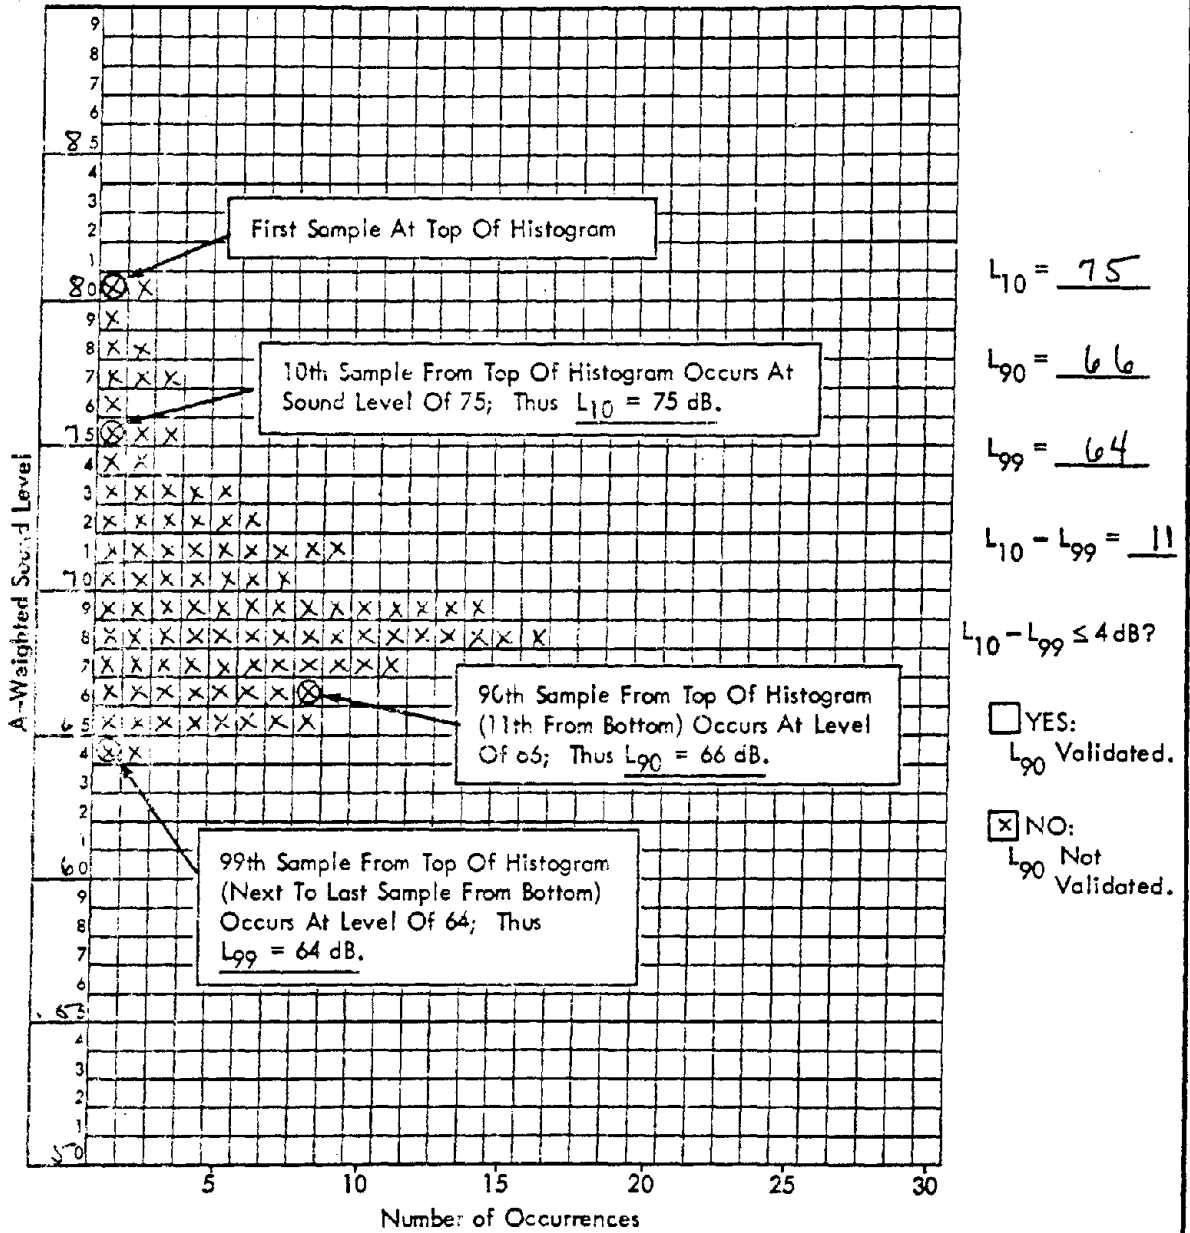 9
8
7
6
8 5
4
3
2
1
80
9
8
7
6
75
4
3
2
1
70
9
8
7
6
65
4
3
2
1
60
9
8
7
6
55
4
3
2
1
50
A-Weighted Sound Level
First Sample At Top Of Histogram
10th Sample From Top Of Histogram Occurs At
Sound Level Of 75; Thus L10 = 75 dB.
90th Sample From Top Of Histogram
(11th From Bottom) Occurs At Level
Of 66; Thus L90 = 66 dB.
99th Sample From Top Of Histogram
(Next To Last Sample From Bottom)
Occurs At Level Of 64; Thus
L99 = 64 dB.
5 10 15 20 25 30
Number of Occurrences
L10 = 75
L90 = 66
L99 = 64
L10 - L99 = 11
L10 - L99 ≤ 4 dB?
YES:
L90 Validated.
X NO:
L90 Not
Validated.